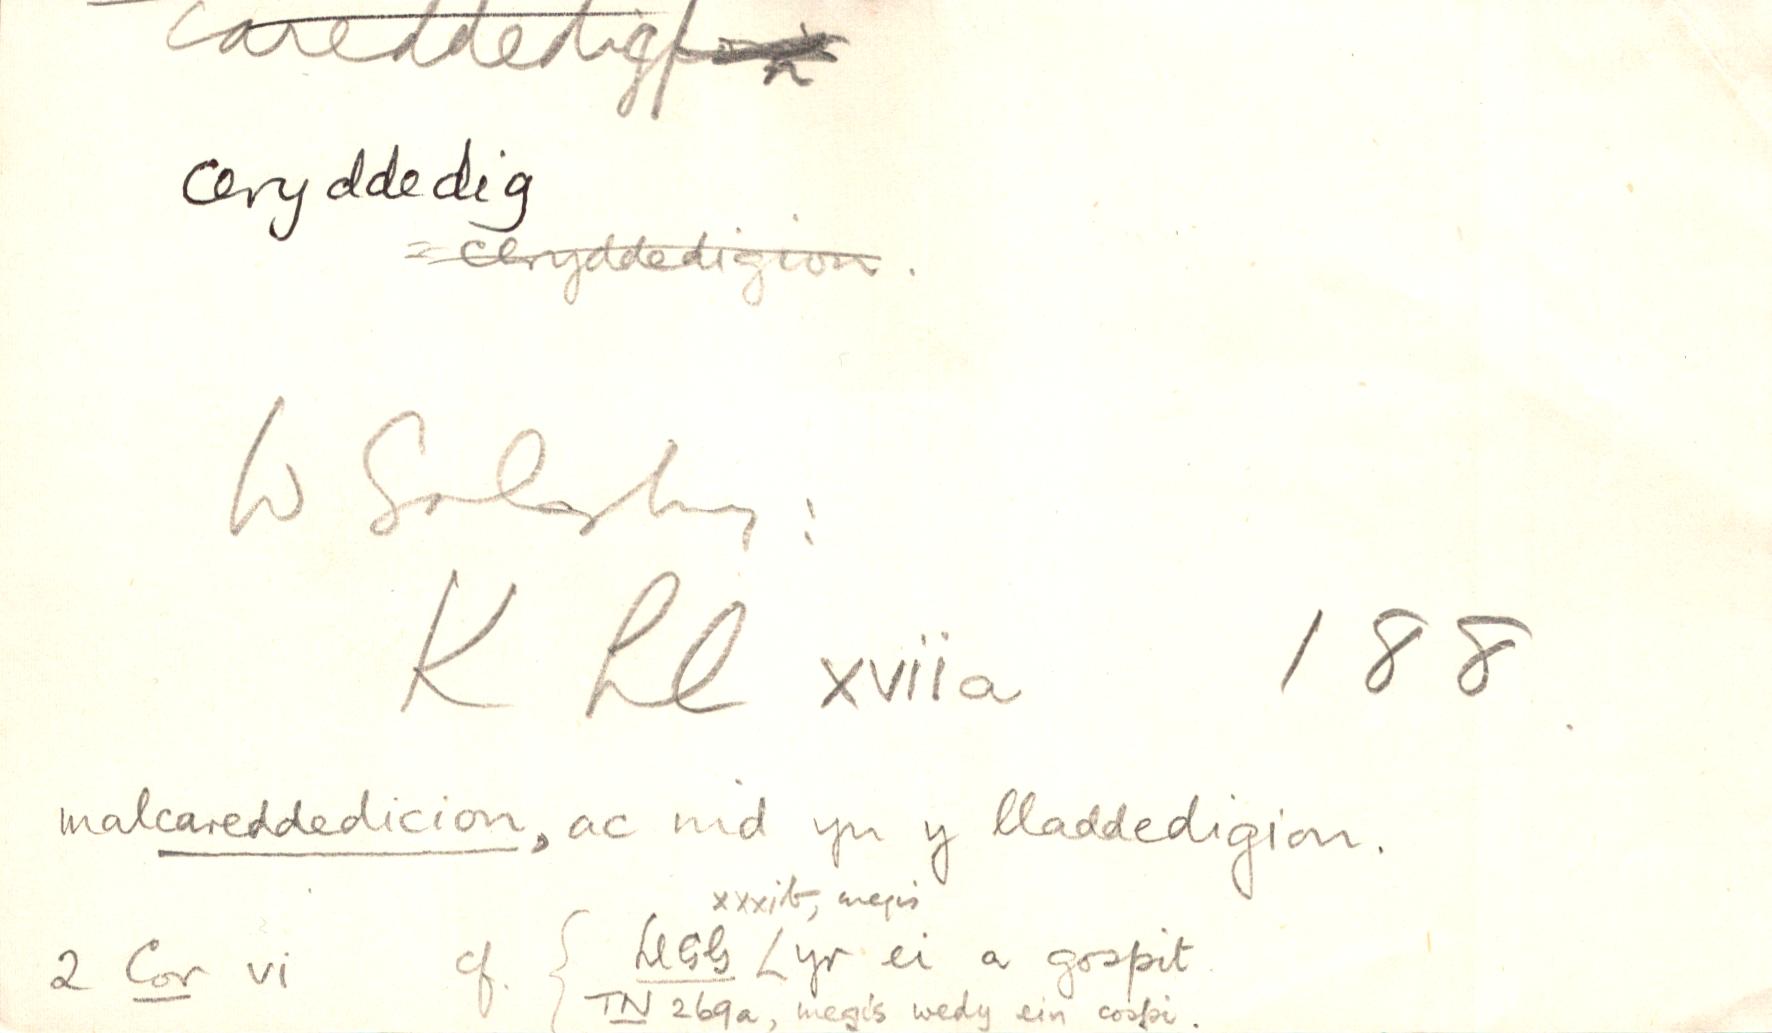 careddedig
ceryddedig
= ceryddedigion.
W Salesbury:
K Ll xviia 188
malcareddedicion, ac nid yn y lladdedigion.
xxxiib, megis
2 Cor vi cf. { LlGG Lyr ei a gospit
TN 269a, megis wedy ein cospi.